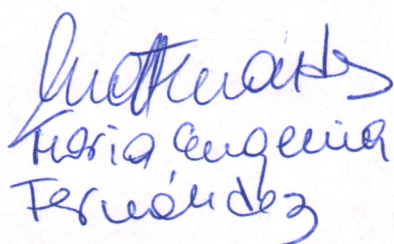 Maria Eugenia
Fernández